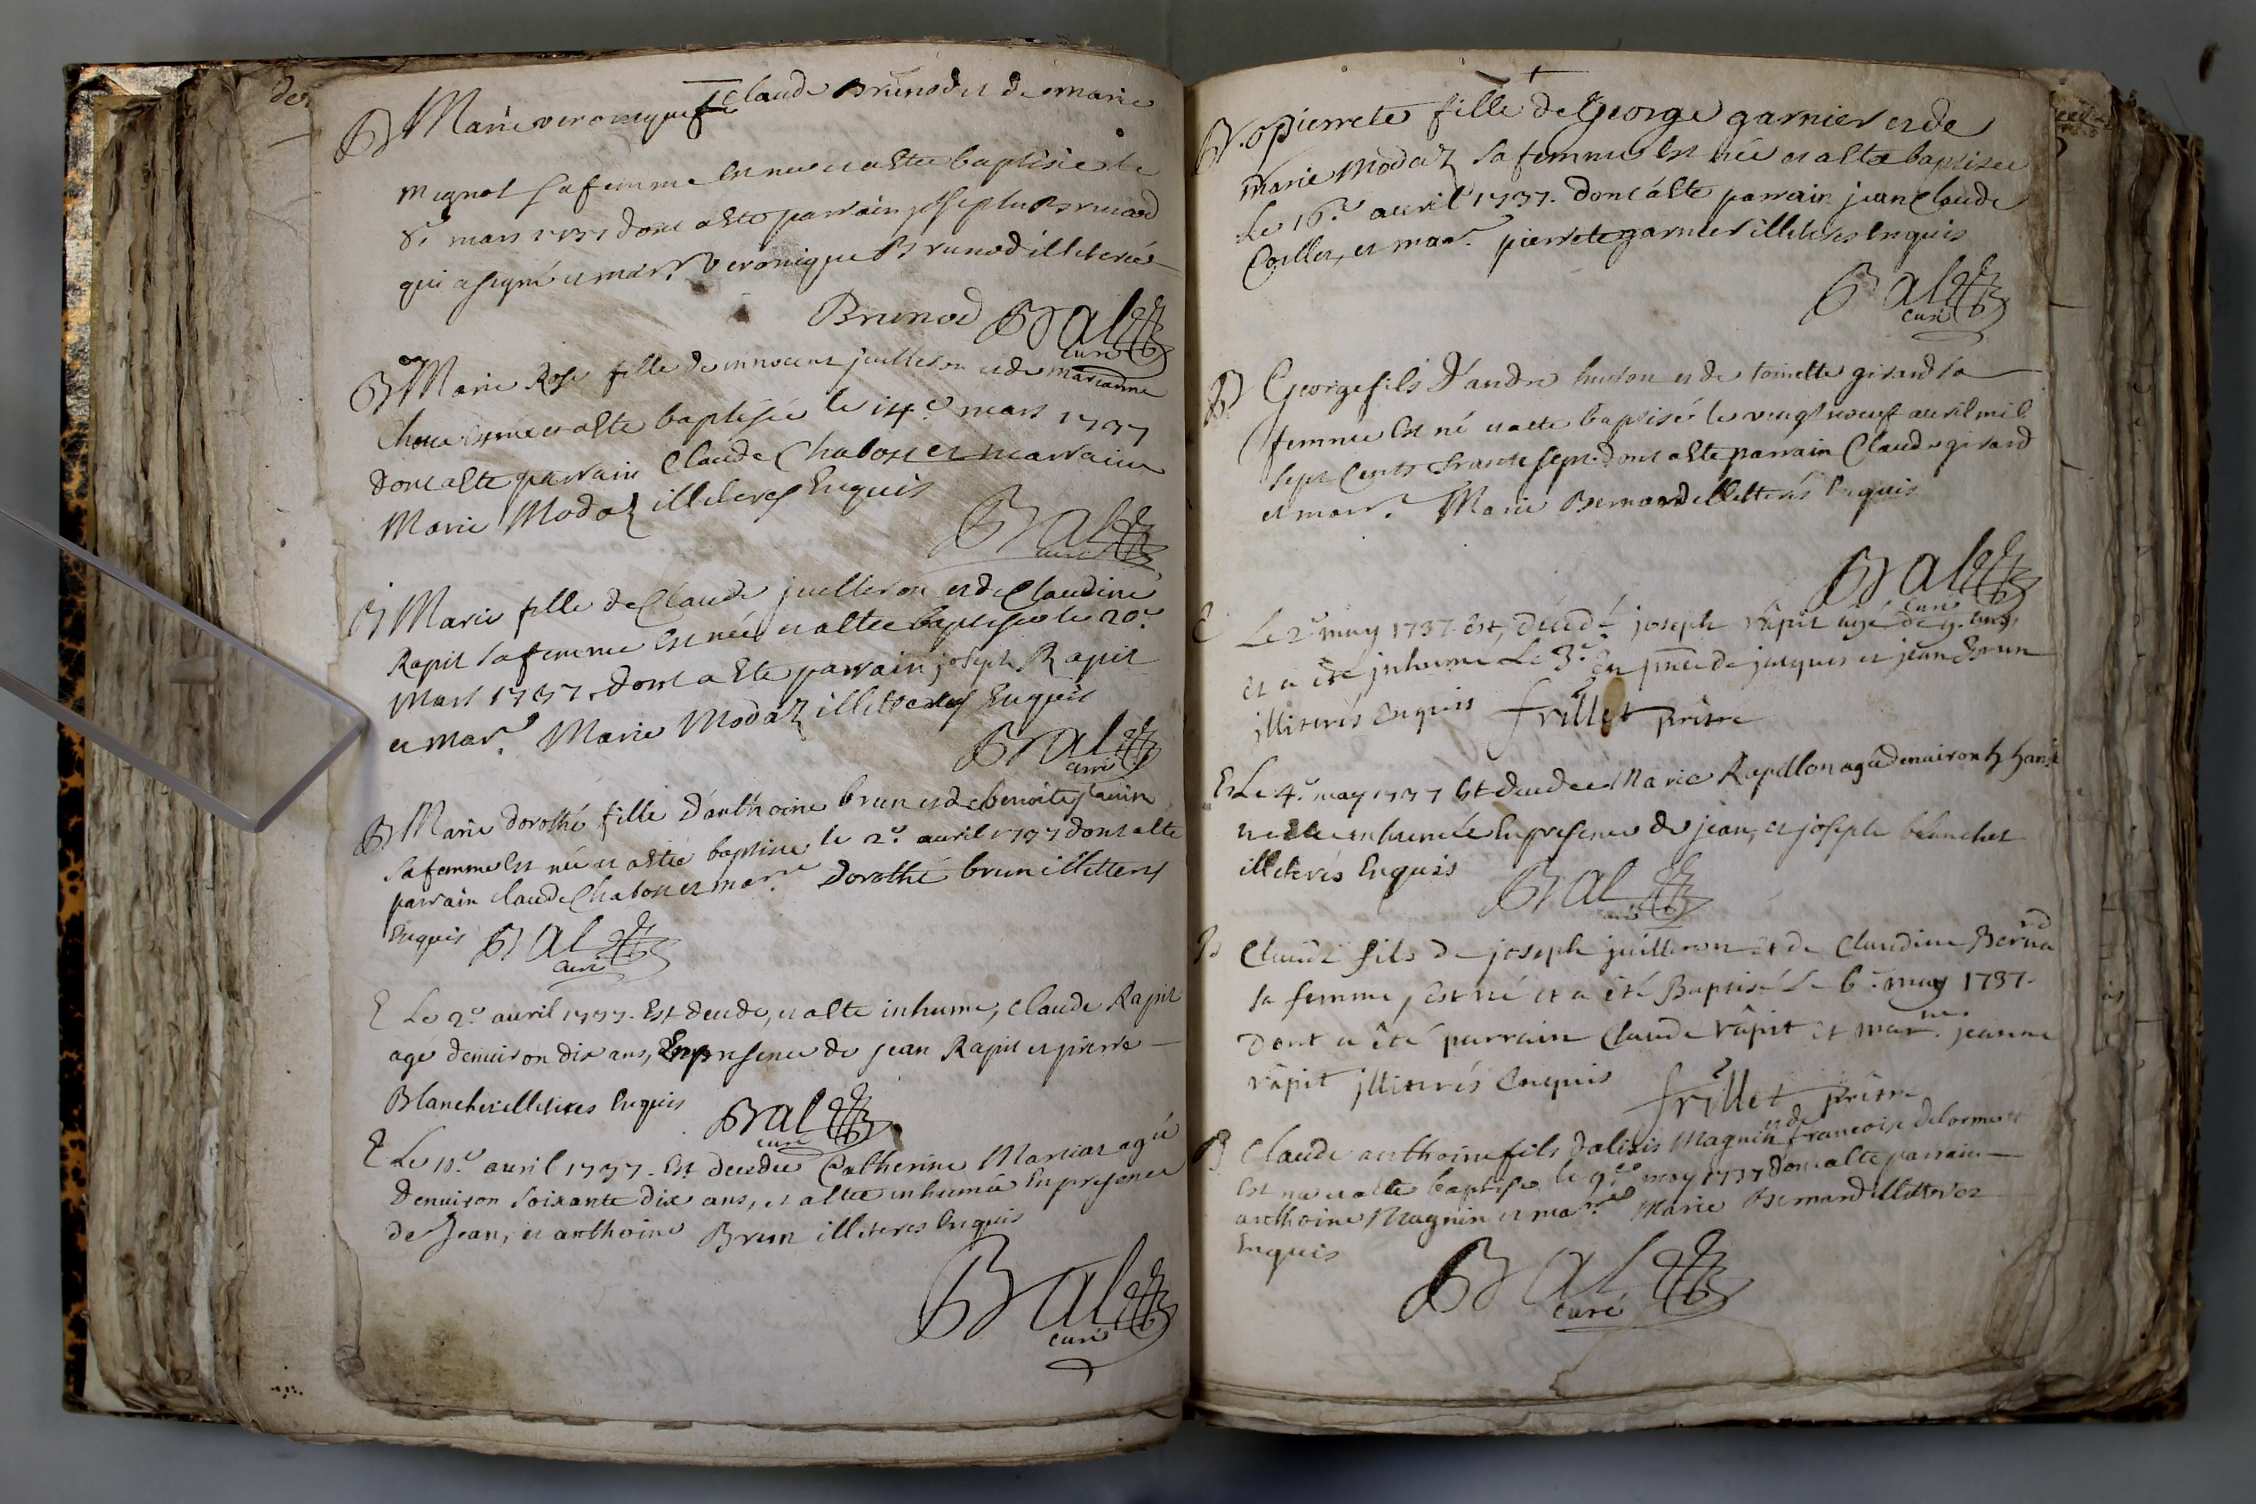 des
B Marie veronique fe Claude Brunod et de marie
mignot sa femme est nee et a Eté baptisée le
8e mars 1737 dont a Eté parrain joseph Bernard
qui a signé et marr. veronique Brunod illiterée
Brunod Bal
curé
B Marie Rose fille de innocent juilleron et de marianne
est née et a Eté baptisée le 14e mars 1737
dont a Eté parrain Claude Chabost et marraine
Marie Modaz illiteres Enquis
Bal
curé
B Marie fille de Claude juilleron et de Claudine
Rapit sa femme Est née et a Eté baptisée le 20e
Mars 1737. dont a Eté parrain joseph Rapit
et marr. Marie Modaz illiteres Enquis
Bal
curé
B Marie dorothé fille d'anthoine brun et de benoite
sa femme Est née et a Eté baptisée le 2e auril 1737 dont a Eté
parrain claude Chabost et marne Dorothé brun illiteres
Enquis Bal
curé
E Le 2e auril 1737. Est decedé, et a Eté inhumé, Claude Rapit
agé denuiron dix ans, En presence de jean Rapit et pierre
Blanchet illiteres Enquis Bal
curé
E Le 11e auril 1737. Est decedée Catherine Marcoz agée
denuiron soixante dix ans, et a Eté inhumée En presence
de Jean, et anthoine Brun illiteres Enquis
Bal
curé
B pierrete fille de George garnier et de
Marie Modaz sa femme Est née et a Eté baptisée
Le 16e auril 1737. dont a Eté parrain jean Claude
Collet, et marr. pierrete garnier illiteres Enquis
Bal
curé
B George fils d'andre et de toinette girard sa
femme Est né et a eté baptisé le vingt neuf auril mil
sept Cents trante sept. dont a Eté parrain Claude girard
et marr. Marie Bernard illitterés Enquis
Bal
curé
E Le 2e may 1737. Est, décédé joseph râpit agé de 9. ans
et a été jnhumé Le 3e En pnce de jacques et jean Brun
illiterés Enquis frillet prêtre
E Le 4e may 1737 Est decedée Marie Rapillon agée denuiron
et a Eté inhumée En presence de jean, et joseph blanchet
illiterés Enquis Bal
curé
B Claude fils de joseph juilleron et de Claudine Bernard
sa femme, Est né et a été Baptisé Le 6e may 1737.
Dont a été parrain Claude râpit et marne jeanne
râpit jlliterés Enquis frillet prêtre
B Claude anthoine fils dalixis Magnin et de francoise delorme
Est né et a Eté baptisé le 9e may 1737 dont a Eté parrain
anthoine Magnin et marne Marie Bernard illitterez
Enquis
Bal
curé